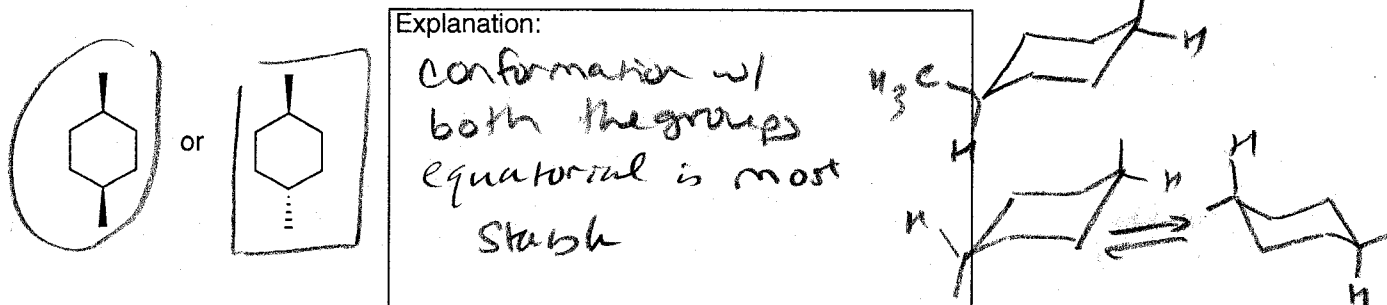 or
Explanation:
conformation w/
both the groups
equatorial is most
H
H₃C
H
H
H
H
H